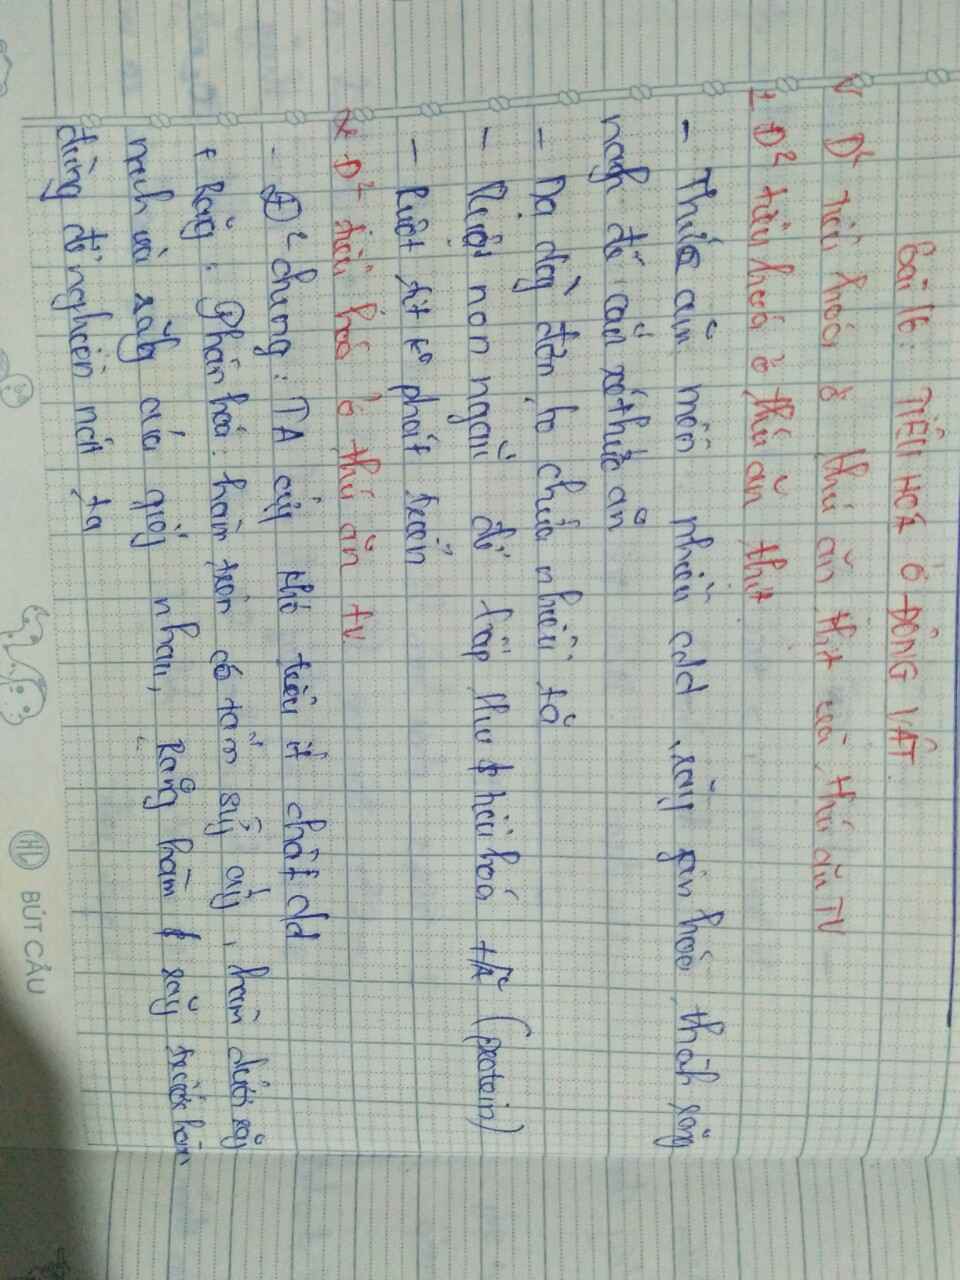 Bài 16: TIÊU HOÁ Ở ĐỘNG VẬT
V Đ² tiêu hoá ở thú ăn thịt và thú ăn TV
1 Đ² tiêu hoá ở thú ăn thịt
- Thức ăn: mềm nhiều cdd, răng phân hoá thành răng
nanh để cắn xé thức ăn
- Dạ dày đơn, to chứa nhiều tă
- Ruột non ngắn để hấp thu & tiêu hoá tă (protein)
- Ruột tịt ko phát triển
* Đ² tiêu hoá ở thú ăn tv
- Đ² chung: TA cứng khó tiêu ít chất dd
+ Răng: Phân hoá: hàm trên có tấm sừng cứng, hàm dưới răng
nanh và răng cửa giống nhau, Răng hàm & răng trước hàm
dùng để nghiền nát ta
BÚT CẦU